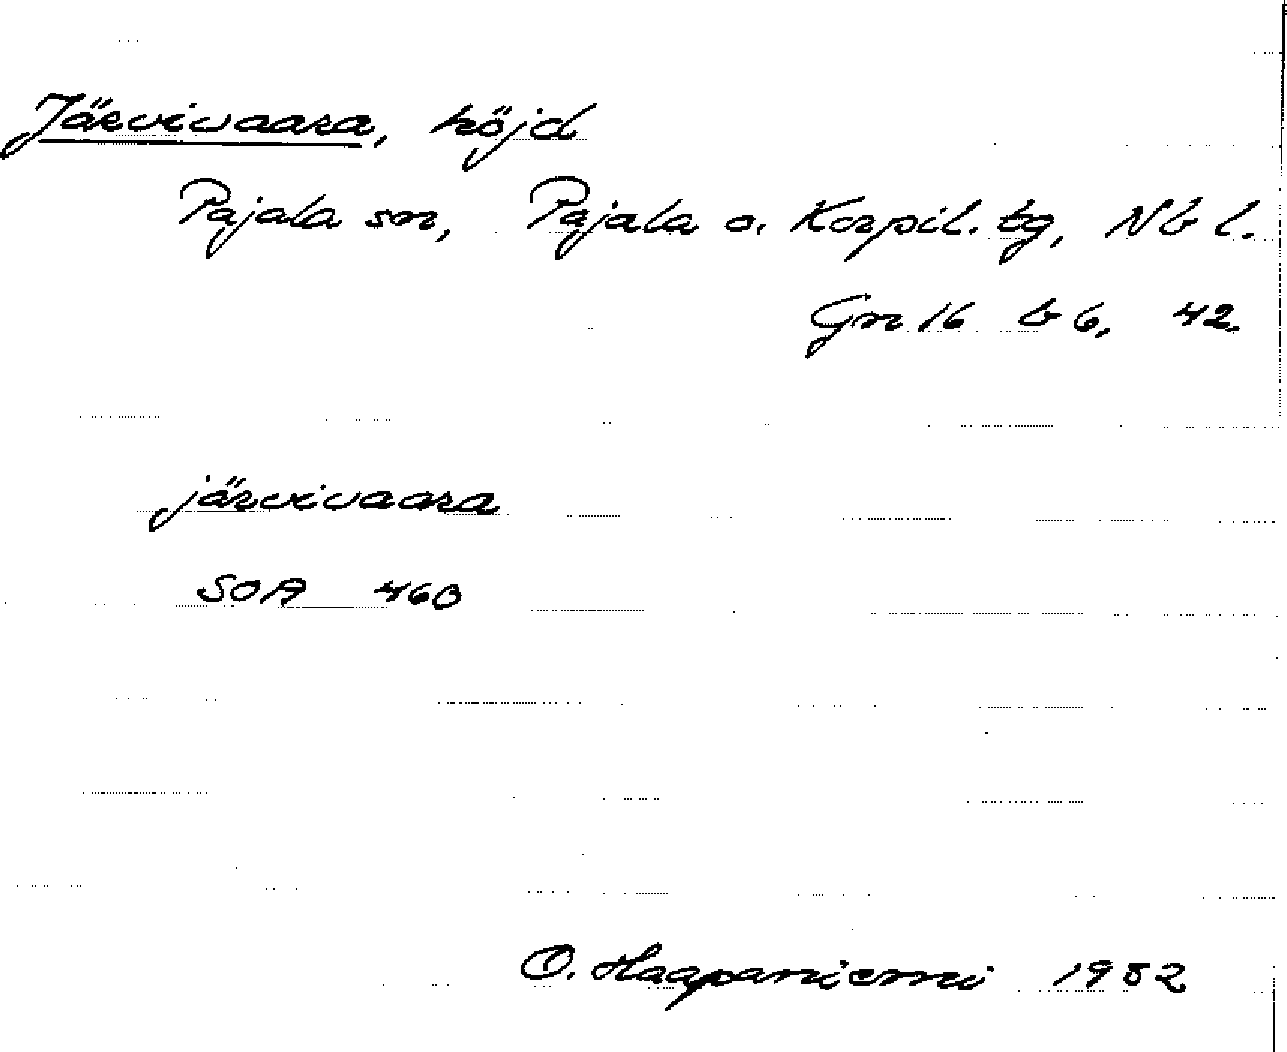 Järvivaara, höjd
Pajala sn, Pajala o. Korpil. tg, Nb l.
Gn 16 b 6, 42.
järvivaara
SOA 460
O. Haapaniemi 1952